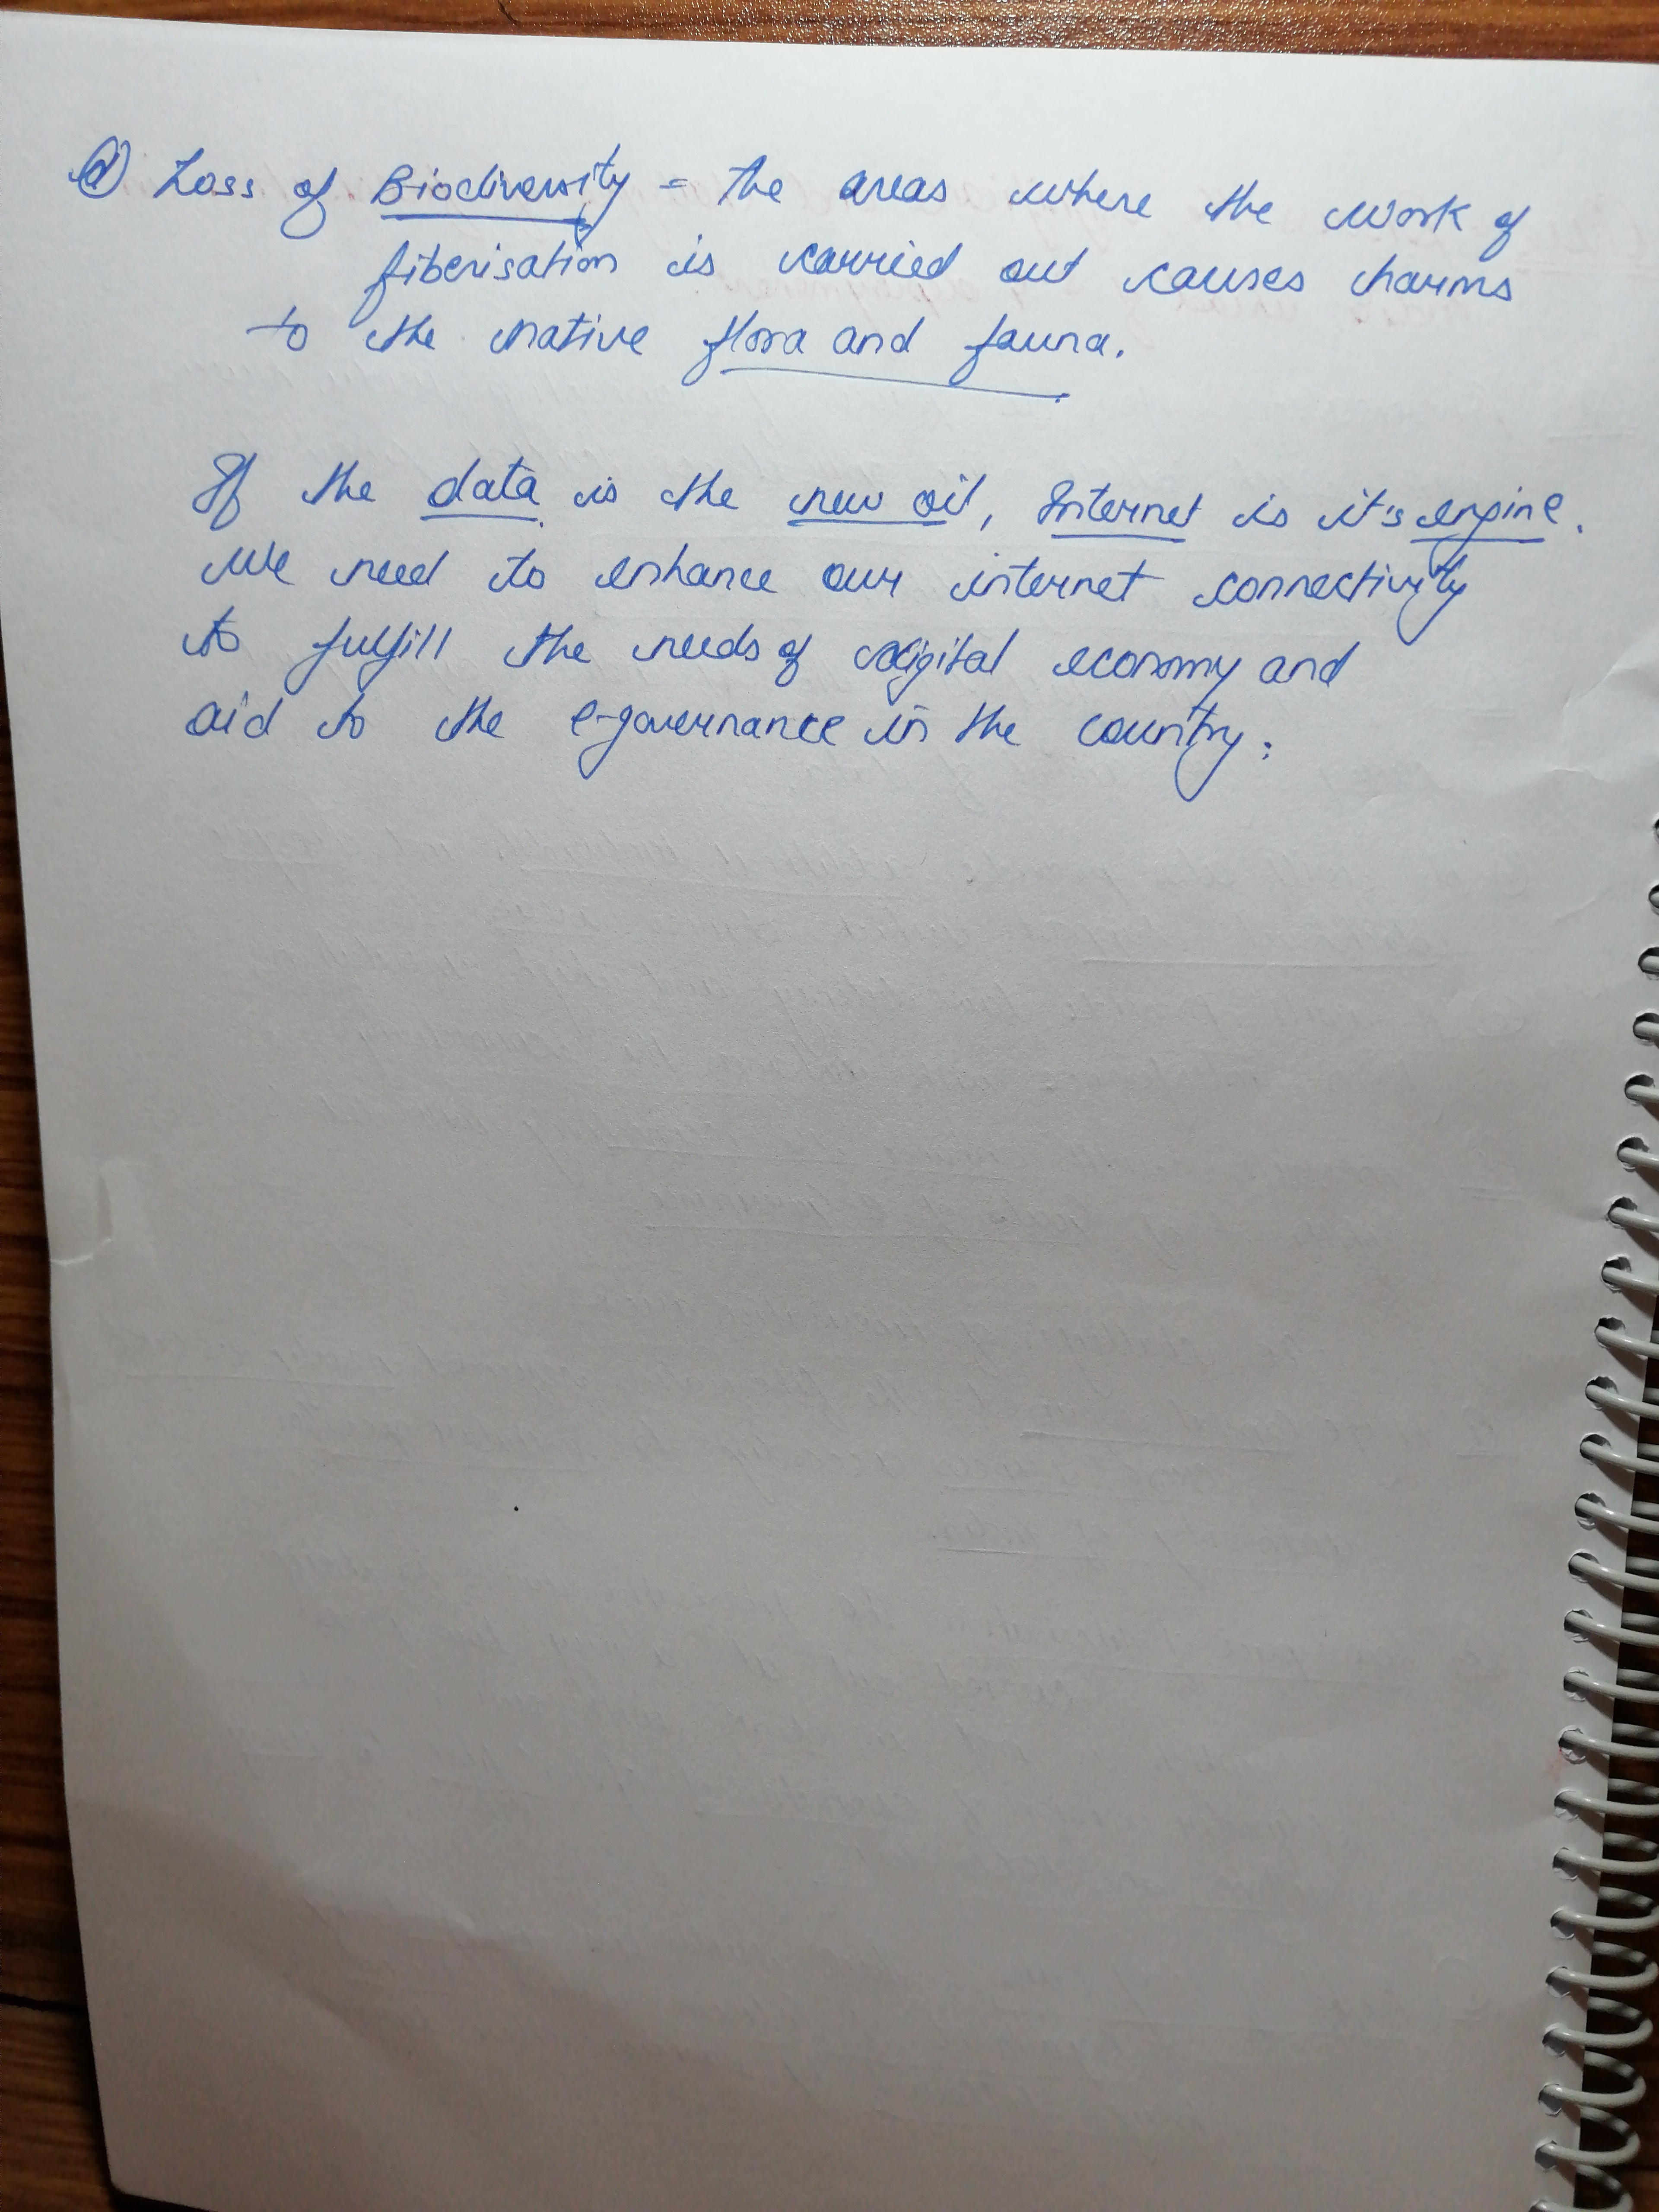 d) Loss of Biodiversity - The areas where the work of
fiberisation is carried out causes harms
to the native flora and fauna.
If the data is the new oil, Internet is it's engine.
We need to enhance our internet connectivity
to fulfill the needs of digital economy and
aid to the e-governance in the country.